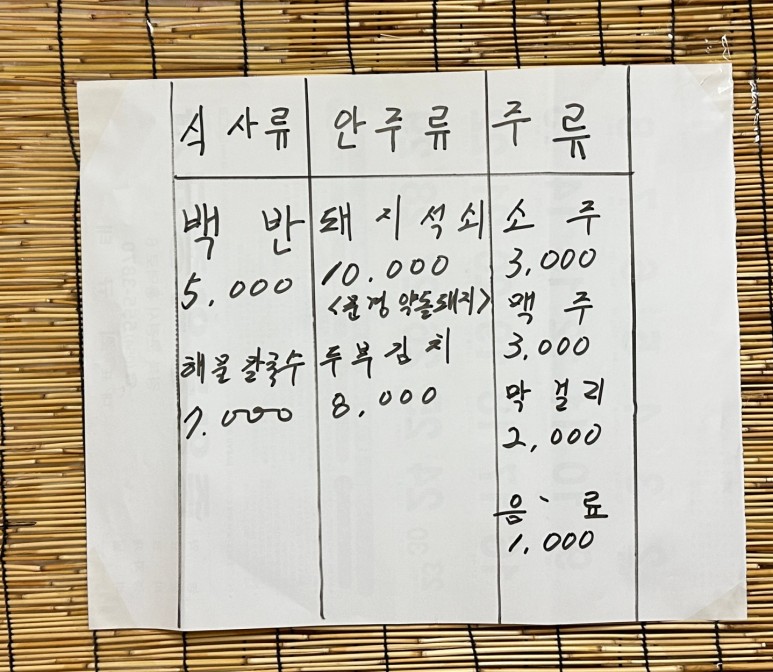 식사류
백반
5,000
해물칼국수
7.000
안주류
돼지석쇠
10.000
<문경약돌돼지>
두부김치
8,000
주류
소주
3,000
맥주
3,000
막걸리
2,000
음、료
1,000